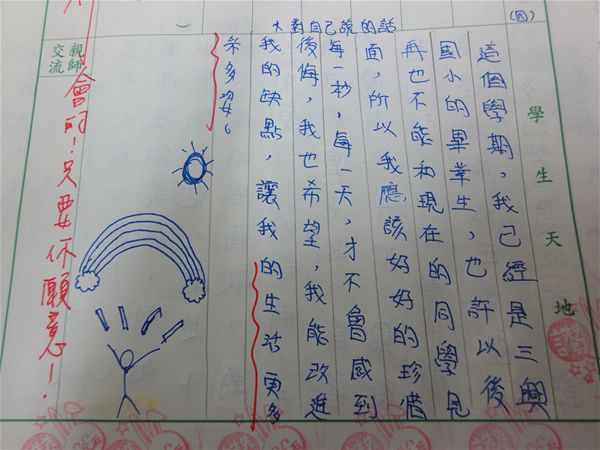 (四)
*對自己說的話
學生天地
這個學期，我已經是三興
國小的畢業生，也許以後
再也不能和現在的同學見
面，所以我應該好好的珍惜
每一秒，每一天，才不會感到
後悔，我也希望，我能改進
我的缺點，讓我的生活更多
采多姿。
親師交流
會的！只要你願意！